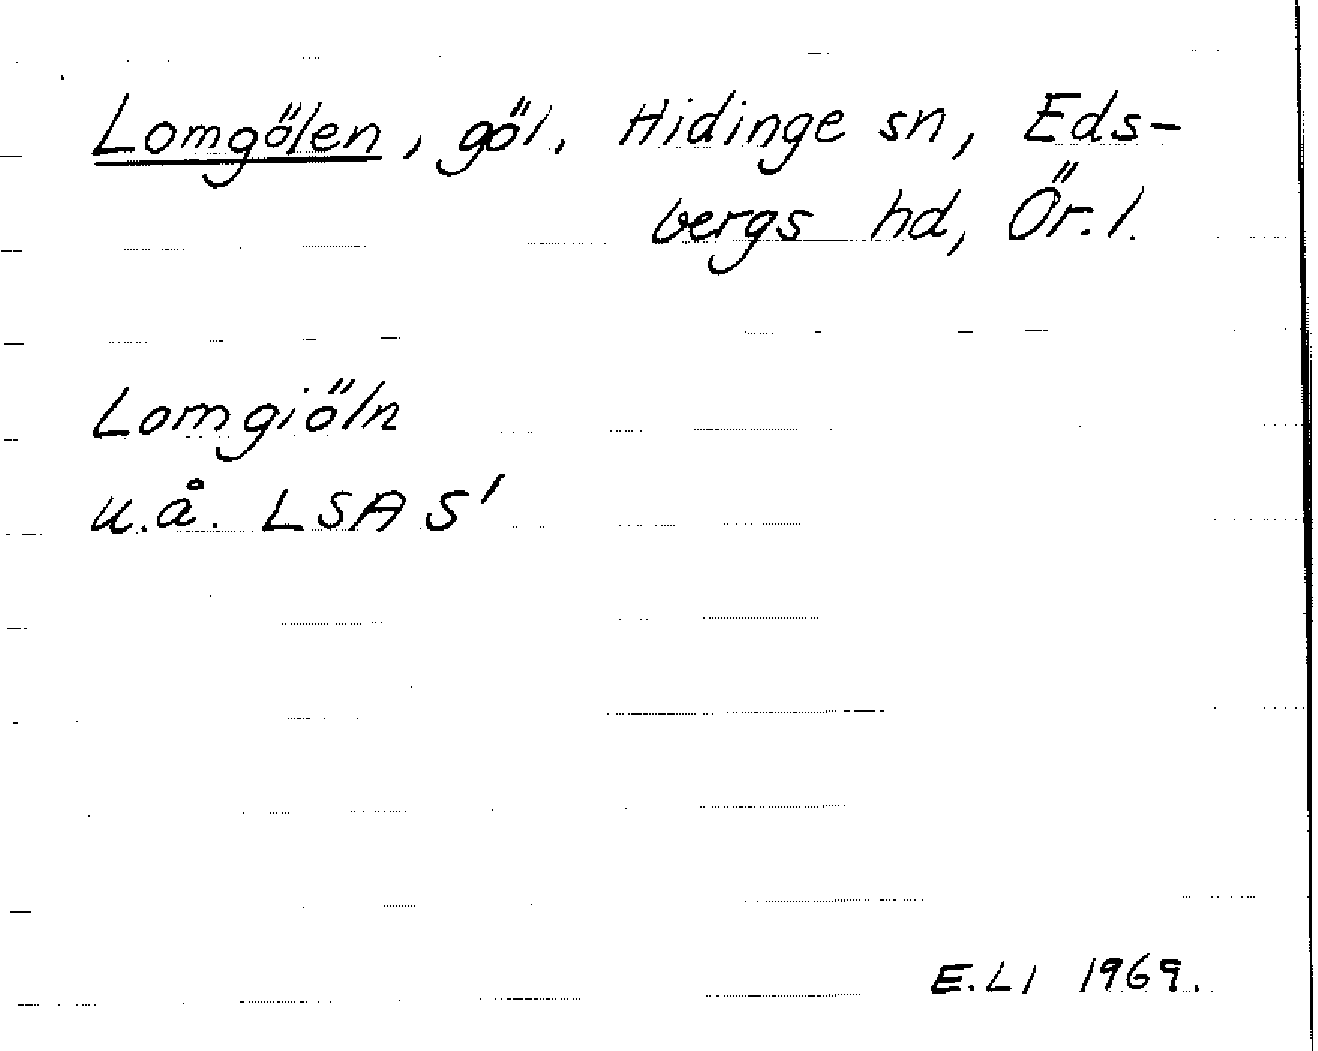 Lomgölen, göl, Hidinge sn, Eds-
bergs hd, Ör.l.
Lomgiöln
u.å. LSA S'
E.Li 1969.